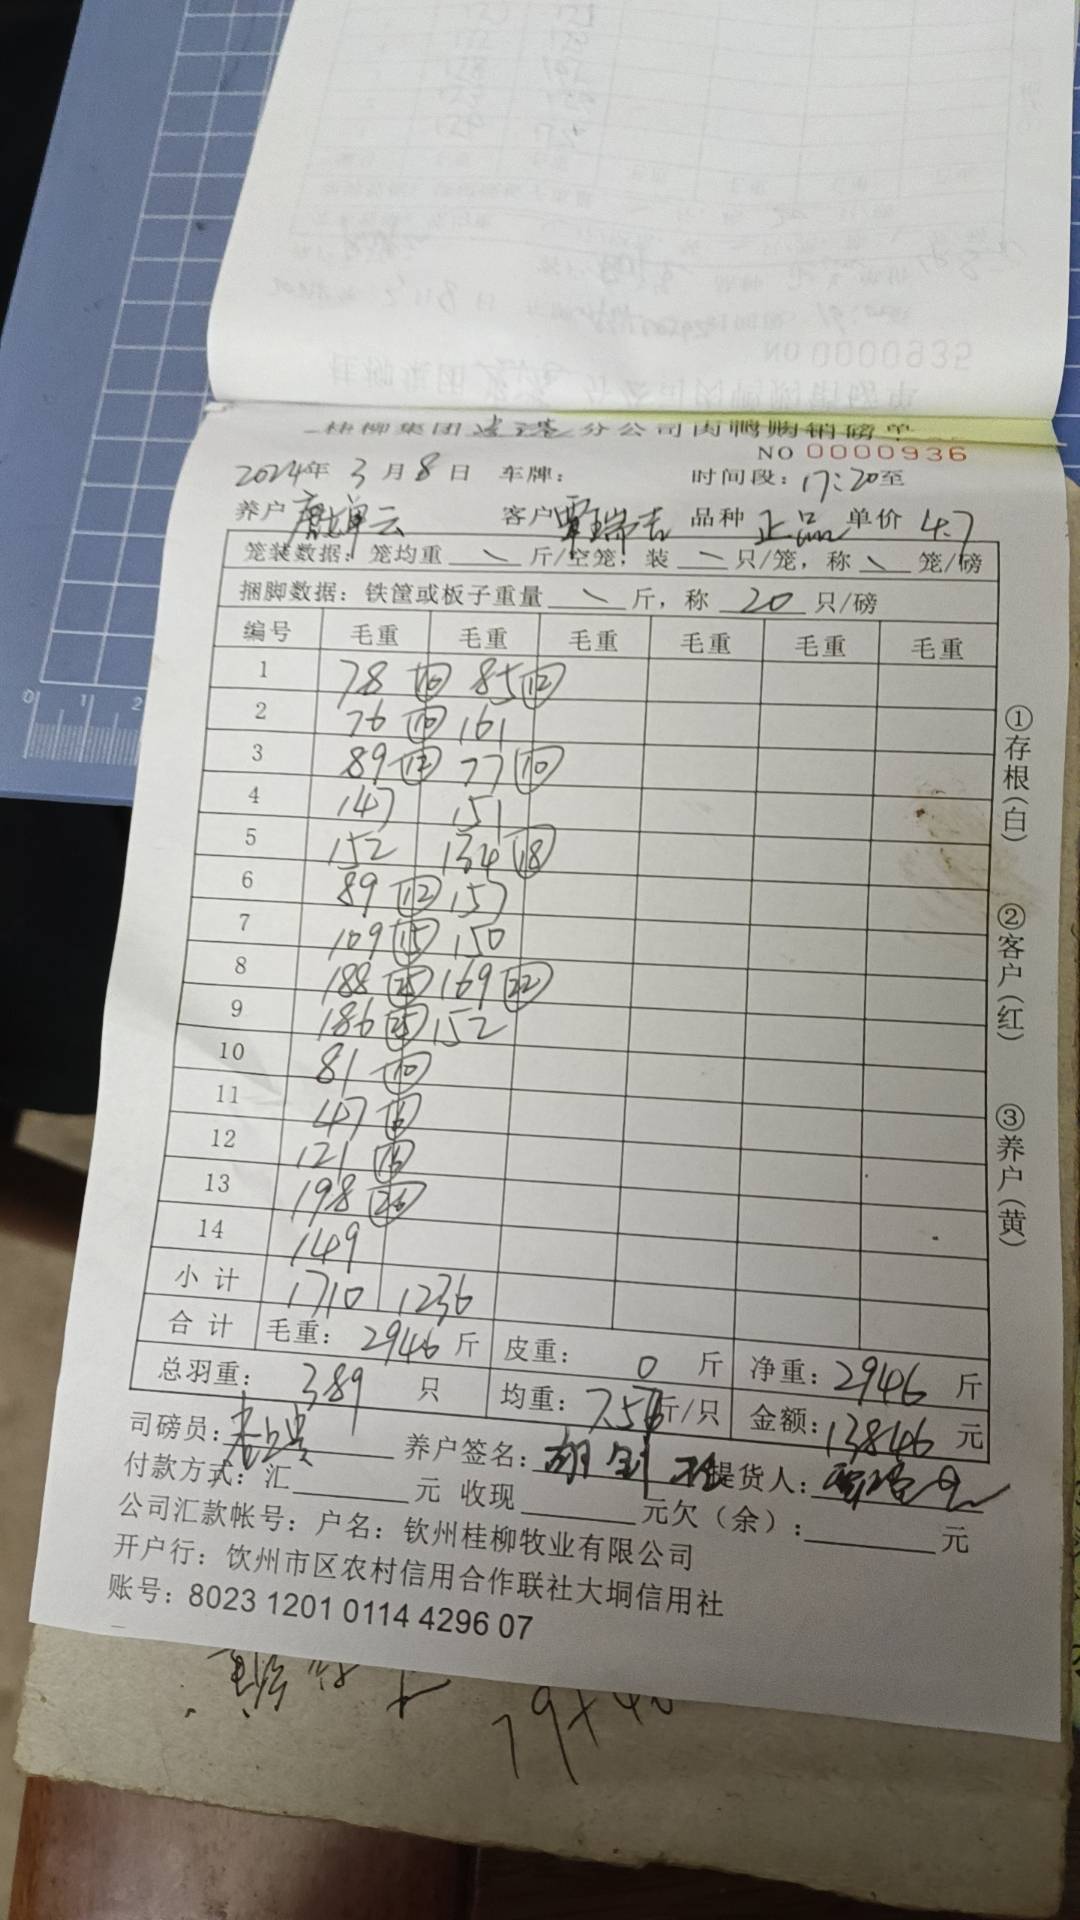 桂柳集团 分公司肉鸭购销磅单
NO 0000936
2024年 3月8日 车牌： 时间段：17:20至
养户 客户 覃瑞吉 品种 正品 单价 4.7
笼装数据：笼均重 \ 斤/空笼，装 \ 只/笼，称 \ 笼/磅
捆脚数据：铁筐或板子重量 \ 斤，称 20 只/磅
编号 毛重 毛重 毛重 毛重 毛重 毛重
1 78 ⑩ 85 ⑫
2 76 ⑩ 161
3 89 77 ⑩
4 147 151
5 152 134 ⑱
6 89 ⑫ 153
7 109 ⑮ 150
8 188 ㉕ 169 ㉒
9 186 ㉕ 152
10 81 ⑩
11 47 ⑥
12 121 ⑯
13 198 ㉖
14 149
小计 1710 1236
合计 毛重：2946 斤 皮重：0 斤 净重：2946 斤
总羽重：389 只 均重：7.57 斤/只 金额：13846 元
司磅员： 养户签名： 提货人：
付款方式：汇 元 收现 元欠（余）： 元
公司汇款帐号：户名：钦州桂柳牧业有限公司
开户行：饮州市区农村信用合作联社大垌信用社
账号：8023 1201 0114 4296 07
①存根（白）
②客户（红）
③养户（黄）
NO 0000935